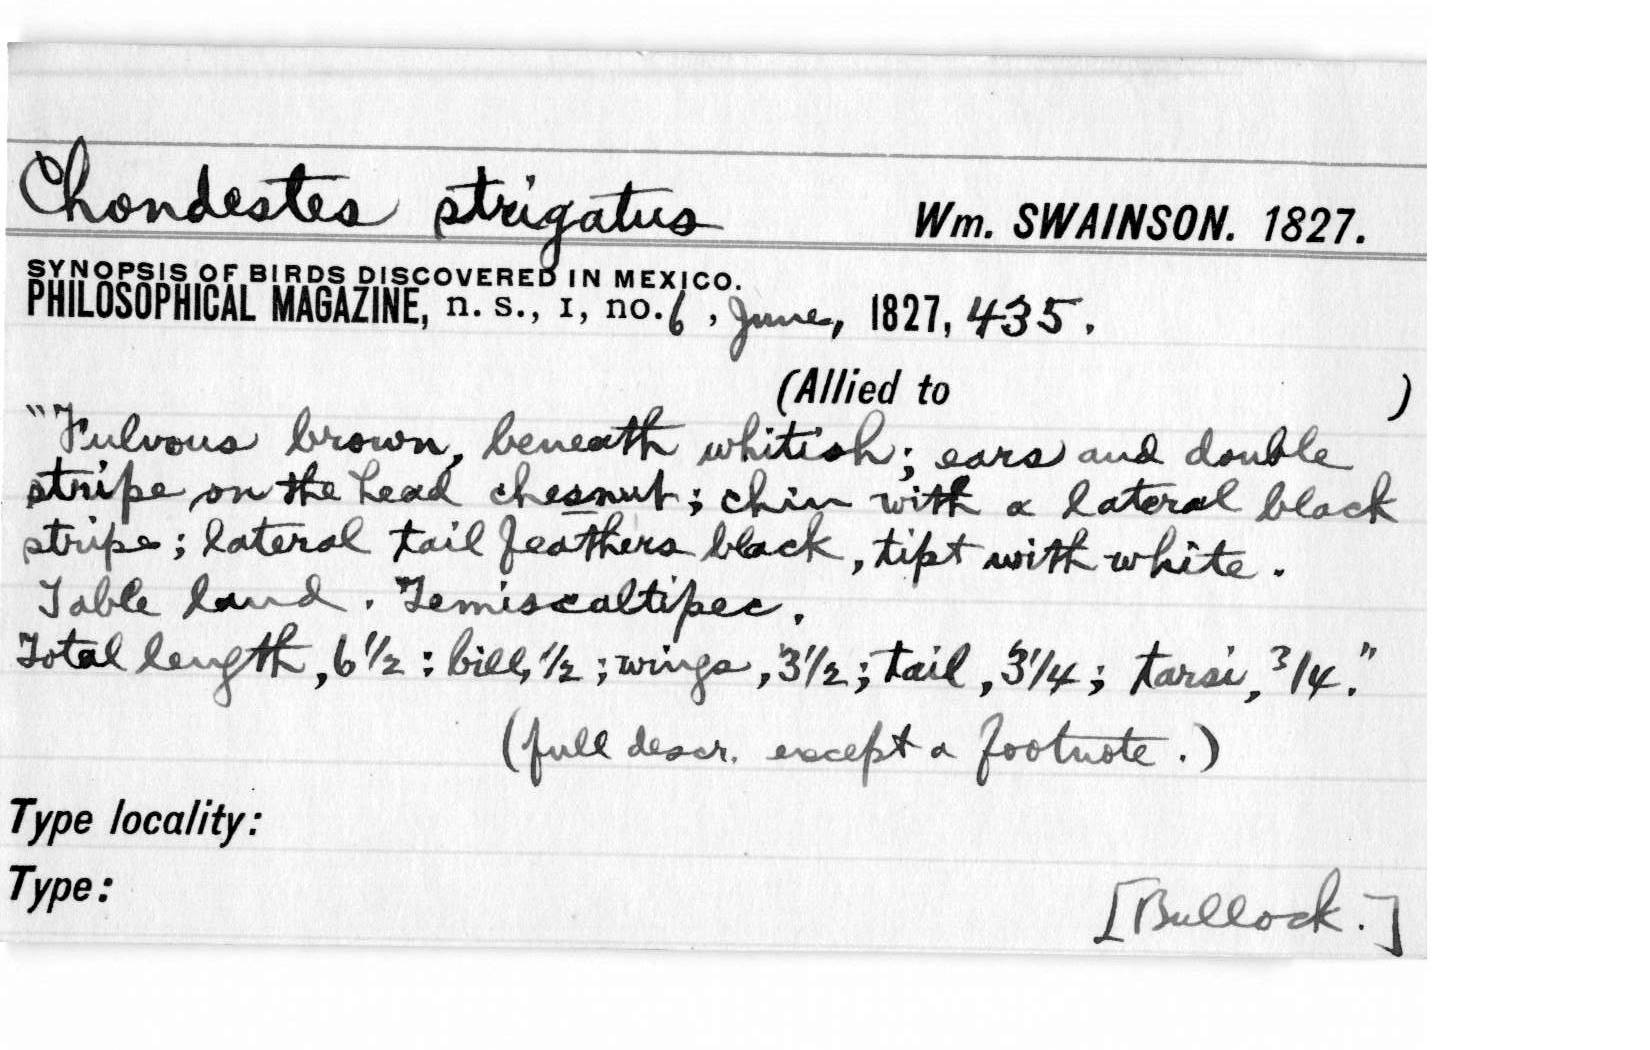 Chondestes strigatus Wm. SWAINSON. 1827.
SYNOPSIS OF BIRDS DISCOVERED IN MEXICO.
PHILOSOPHICAL MAGAZINE, n. s., I, no. 6, June, 1827, 435.
(Allied to )
"Fulvous brown, beneath whitish; ears and double
stripe on the head chesnut; chin with a lateral black
stripe; lateral tail feathers black, tipt with white.
Table land. Temiscaltipec.
Total length, 6 1/2; bill, 1/2; wings, 3 1/2; tail, 3 1/4; tarsi, 3/4."
(full descr. except a footnote.)
Type locality:
Type:
[Bullock.]